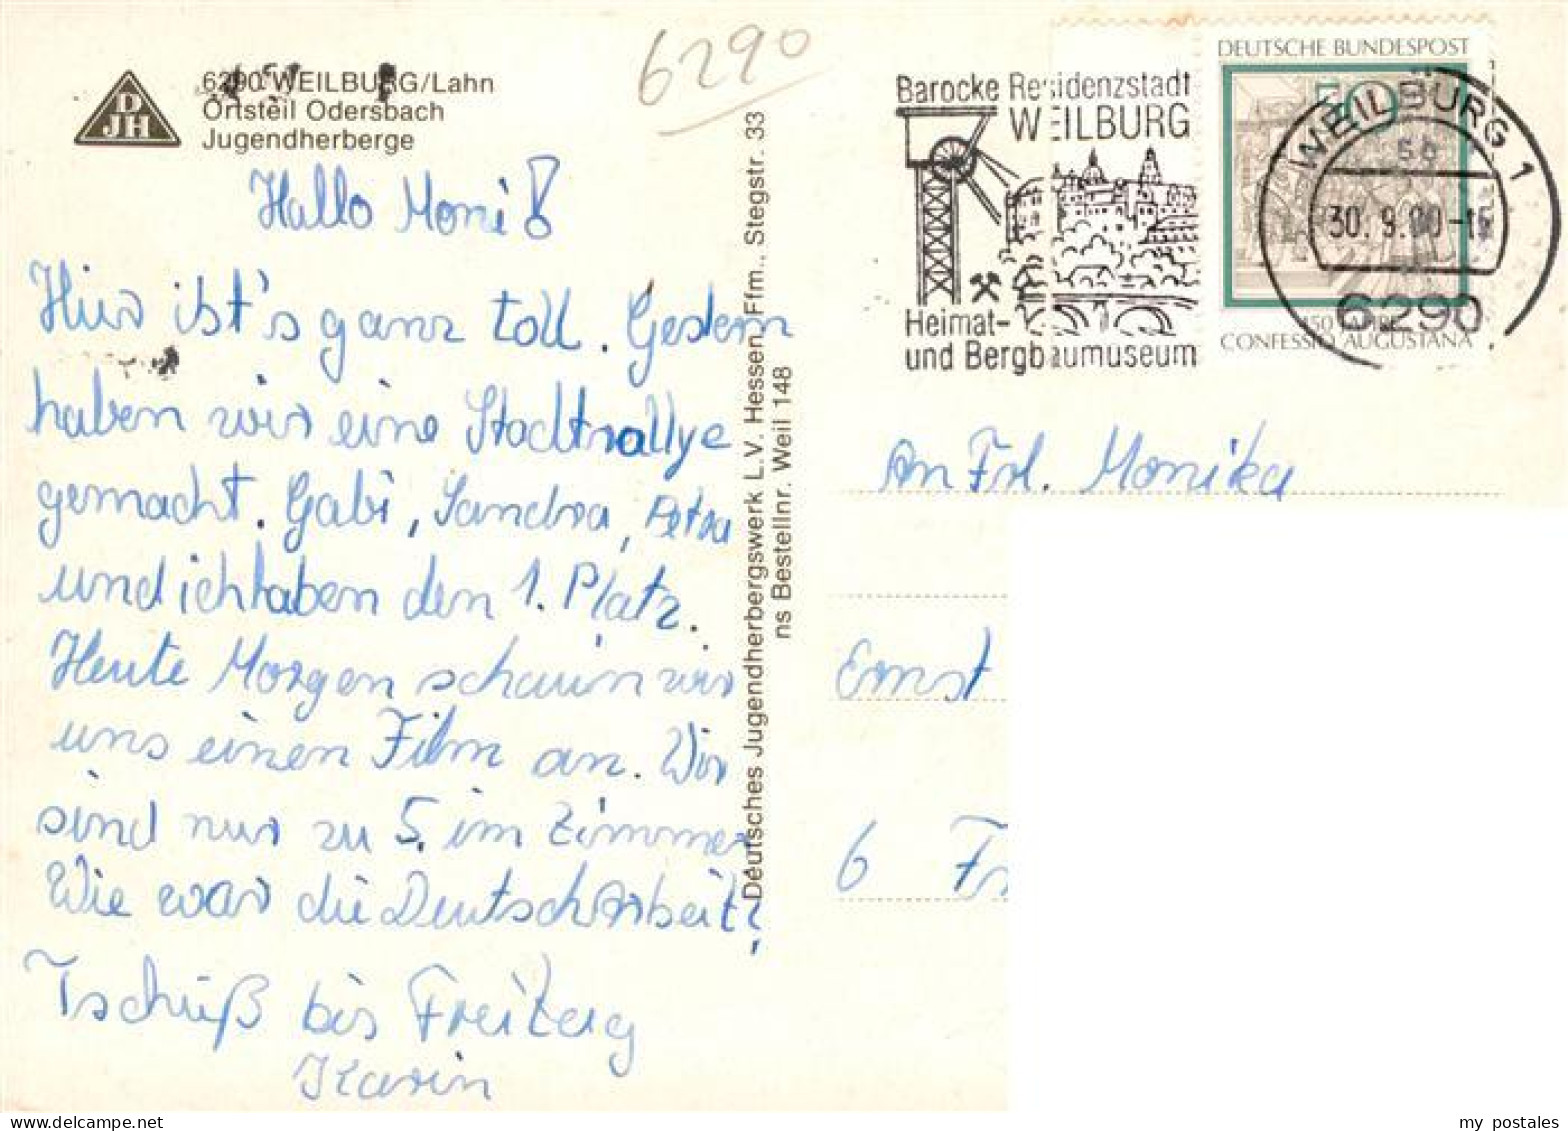 6290
D
JH
6290 WEILBURG/Lahn
Ortsteil Odersbach
Jugendherberge
Hallo Moni!
Hier ist's ganz toll. Gestern
haben wir eine Stadtrallye
gemacht. Gabi, Sandra, Petra
und ich haben den 1. Platz.
Heute Morgen schauen wir
uns einen Film an. Wir
sind nur zu 5. im Zimmer
Wie war die Deutscharbeit?
Tschüß bis Freitag
Karin
Deutsches Jugendherbergswerk L.V. Hessen, Ffm., Stegstr. 33
ns Bestellnr. Weil 148
Barocke Residenzstadt
WEILBURG
Heimat-
und Bergbaumuseum
DEUTSCHE BUNDESPOST
450 JAHRE
CONFESSIO AUGUSTANA
WEILBURG 1
30. 9.80
6290
An Frl. Monika
Ernst
6 Fr
my postales